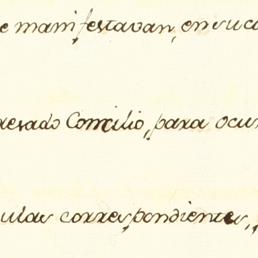 e manifestavan, en su ca
resado Concilio, para ocur
ulas correspondientes,